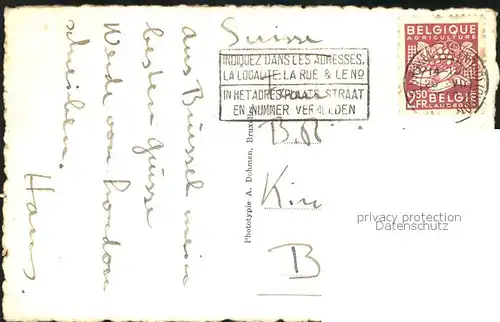 Aus Brüssel meine
besten Grüsse
Werde von London
schreiben.
Hans.
Suisse
INDIQUEZ DANS LES ADRESSES,
LA LOCALITE, LA RUE & LE NO
IN HET ADRES PLAATS, STRAAT
EN NUMMER VERMELDEN
BELGIQUE
AGRICULTURE
2,50
FR.
LANDBOUW
BELGIE
Phototypie A. Dohmen, Bruxelles
B.
Kir
B
privacy protection
watermark